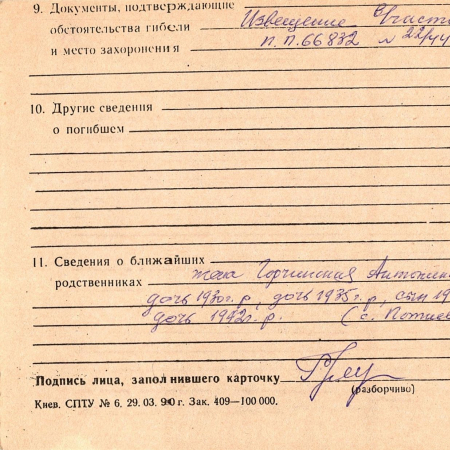 9. Документы, подтверждающие
обстоятельства гибели Извещение в/части
и место захоронения п.п. 66832 № 22/44
10. Другие сведения
о погибшем
11. Сведения о ближайших
родственниках жена Горчинская Антонин
дочь 1930г.р, дочь 1935г.р, сын 19
дочь 1942г.р. (с.
Подпись лица, заполнившего карточку
(разборчиво)
Киев. СПТУ № 6. 29. 03. 90 г. Зак. 409—100 000.